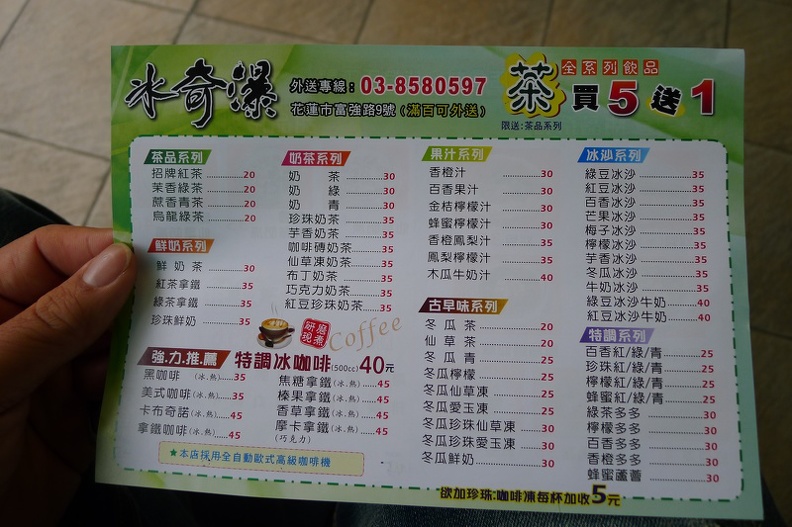 冰奇瀑
外送專線：03-8580597
花蓮市富強路9號（滿百可外送）
茶 全系列飲品
買5送1
限送：茶品系列
茶品系列
招牌紅茶 20
茉香綠茶 20
蔗香青茶 20
烏龍綠茶 20
鮮奶系列
鮮奶茶 30
紅茶拿鐵 35
綠茶拿鐵 35
珍珠鮮奶 35
奶茶系列
奶茶 30
奶綠 30
奶青 30
珍珠奶茶 35
芋香奶茶 35
咖啡磚奶茶 35
仙草凍奶茶 35
布丁奶茶 35
巧克力奶茶 35
紅豆珍珠奶茶 35
研磨現煮
Coffee
強.力.推.薦 特調冰咖啡(500cc) 40元
黑咖啡 (冰.熱) 35
美式咖啡(冰.熱) 35
卡布奇諾(冰.熱) 45
拿鐵咖啡(冰.熱) 45
焦糖拿鐵(冰.熱) 45
榛果拿鐵(冰.熱) 45
香草拿鐵(冰.熱) 45
摩卡拿鐵(冰.熱) 45
(巧克力)
★本店採用全自動歐式高級咖啡機
果汁系列
香橙汁 30
百香果汁 30
金桔檸檬汁 30
蜂蜜檸檬汁 30
香橙鳳梨汁 35
鳳梨檸檬汁 35
木瓜牛奶汁 40
古早味系列
冬瓜茶 20
仙草茶 20
冬瓜青 25
冬瓜檸檬 25
冬瓜仙草凍 25
冬瓜愛玉凍 25
冬瓜珍珠仙草凍 30
冬瓜珍珠愛玉凍 30
冬瓜鮮奶 30
冰沙系列
綠豆冰沙 35
紅豆冰沙 35
百香冰沙 35
芒果冰沙 35
梅子冰沙 35
檸檬冰沙 35
芋香冰沙 35
冬瓜冰沙 35
牛奶冰沙 35
綠豆冰沙牛奶 40
紅豆冰沙牛奶 40
特調系列
百香紅/綠/青 25
珍珠紅/綠/青 25
檸檬紅/綠/青 25
蜂蜜紅/綠/青 25
綠茶多多 30
檸檬多多 30
百香多多 30
香橙多多 30
蜂蜜蘆薈 30
*欲加珍珠:咖啡凍每杯加收5元